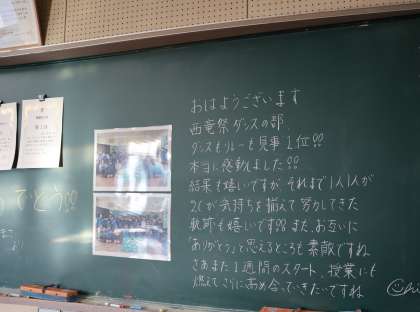 おはようございます
西竜祭ダンスの部、
ダンスもリレーも見事1位!!
本当に感動しました!!
結果も嬉しいですが、それまで1人1人が
2Cが気持ちを揃えて努力してきた
軌跡も嬉しいです!!また、お互いに
「ありがとう」と思えるところも素敵ですね
さあまた1週間のスタート、授業にも
燃えてさらに高め合っていきたいですね
でとう!!